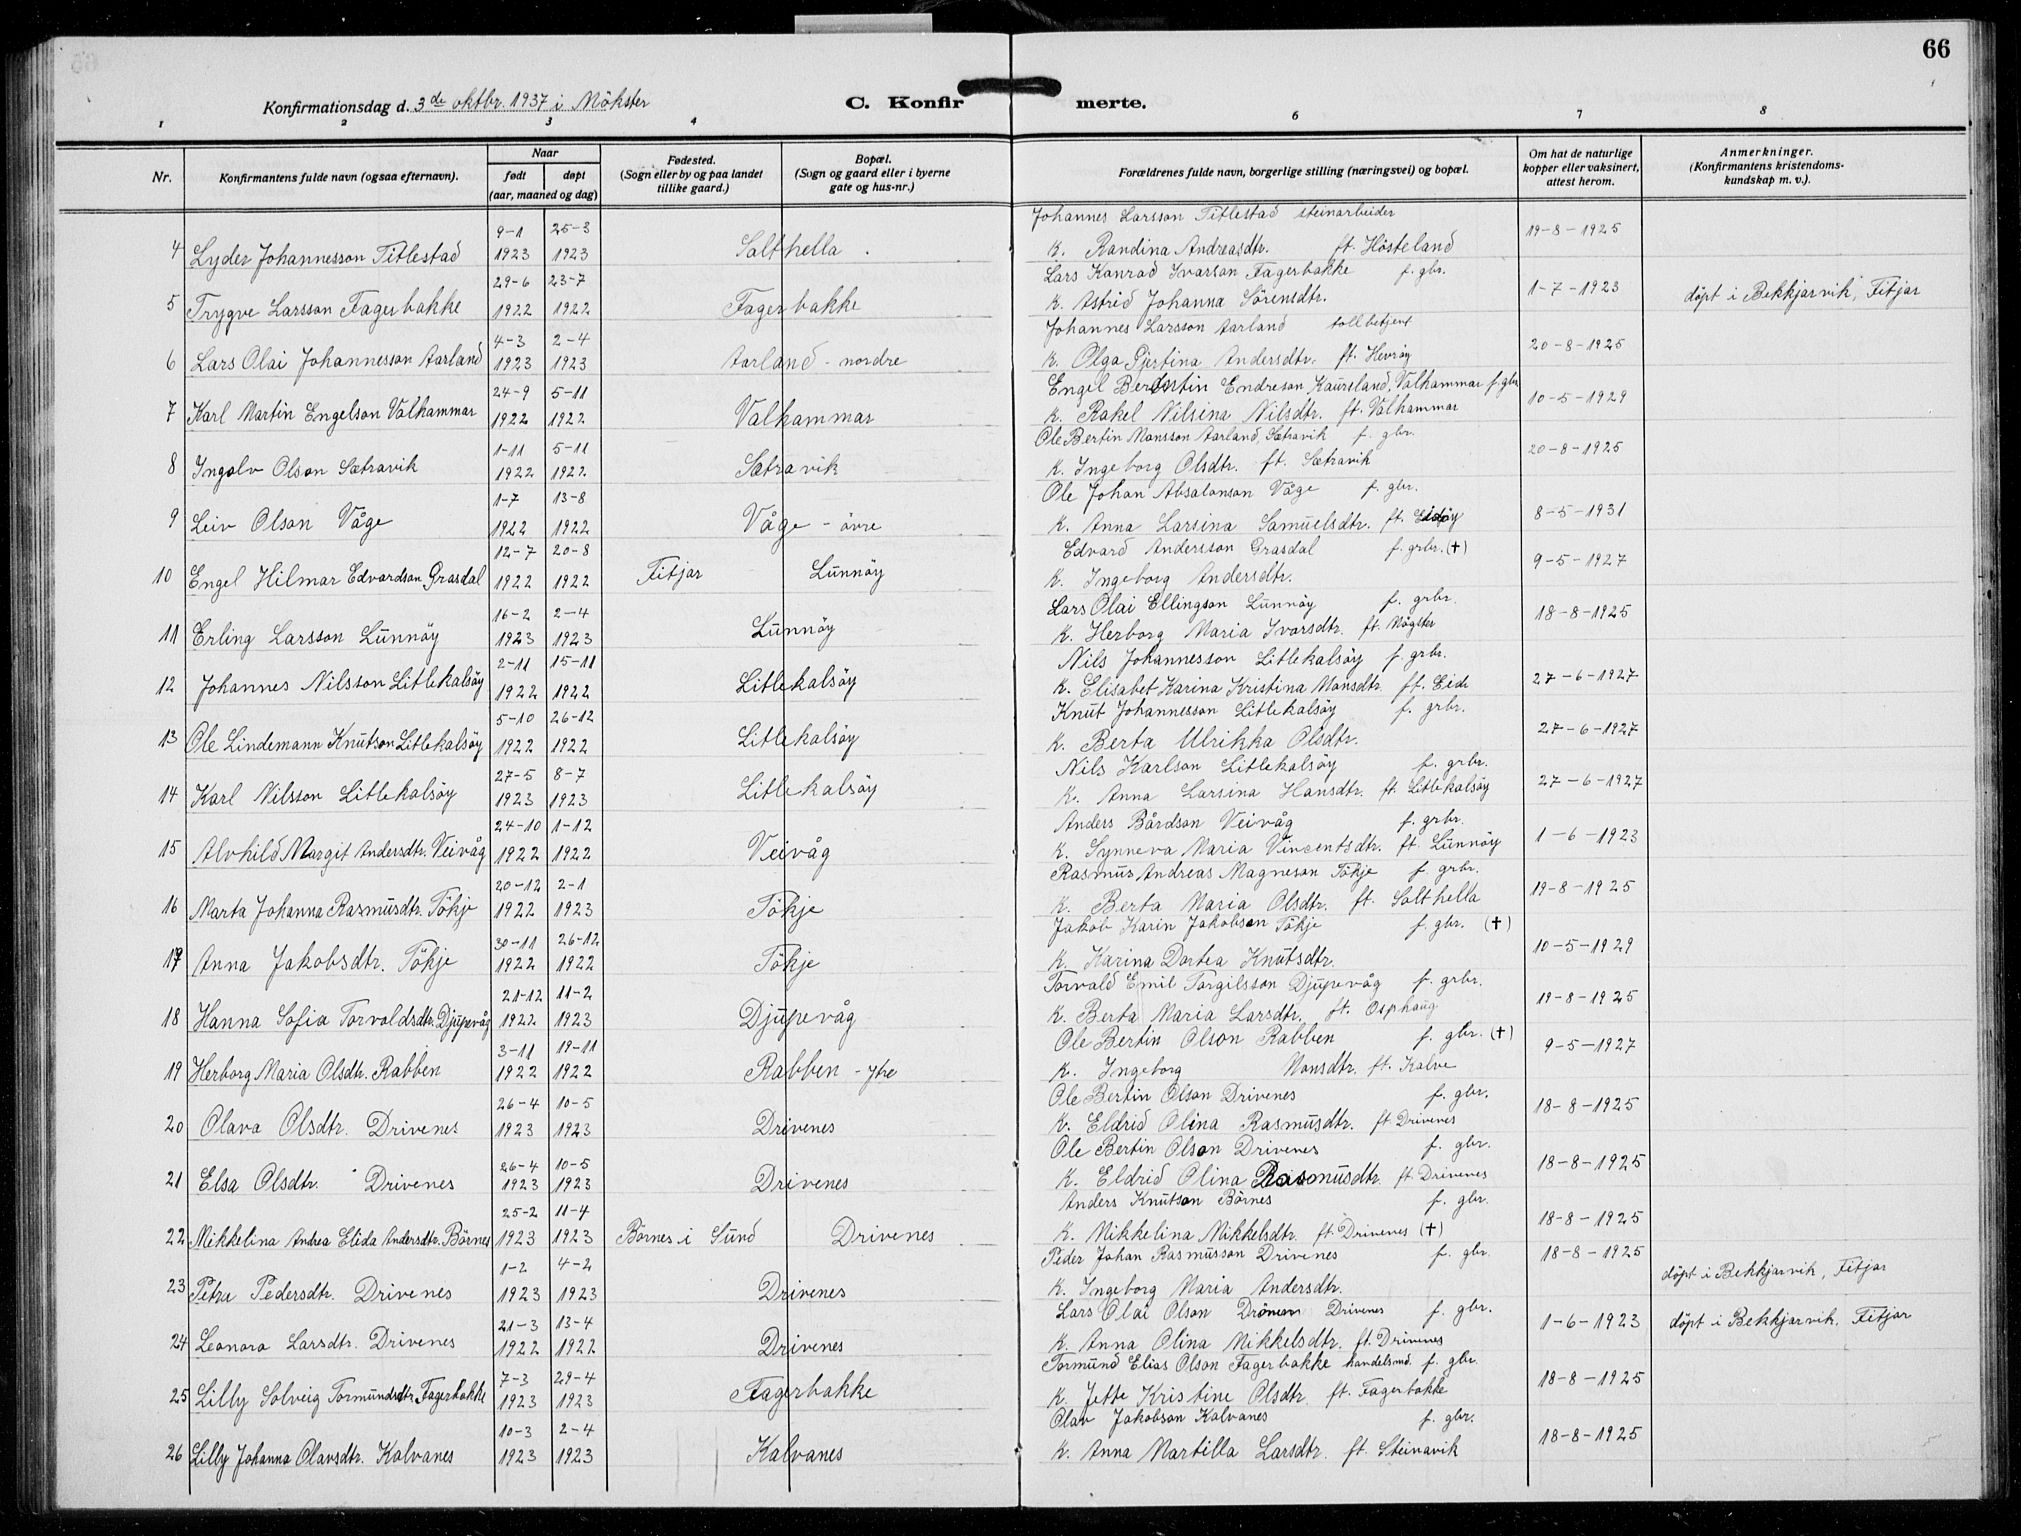 66
Konfirmationsdag d. 3de oktbr. 1937 i Mökster
C. Konfirmerte.
1 2 3 4 6 7 8
Nr.
Konfirmantens fulde navn (ogsaa efternavn).
Naar
født
døpt
(aar, maaned og dag)
Fødested.
(Sogn eller by og paa landet
tillike gaard.)
Bopæl.
(Sogn og gaard eller i byerne
gate og hus-nr.)
Forældrenes fulde navn, borgerlige stilling (næringsvei) og bopæl.
Om hat de naturlige
kopper eller vaksinert,
attest herom.
Anmerkninger.
(Konfirmantens kristendoms-
kundskap m. v.).
9-1 25-3 Johannes Larsson Titlestad steinarbeider 19-8-1925
4 Lyder Johannesson Titlestad 1923 1923 Salthella K. Randina Andreasdtr. ft. Hösteland
29-6 23-7 Lars Konrad Ivarson Fagerbakke f. gbr. 1-7-1923
5 Trygve Larsson Fagerbakke 1922 1922 Fagerbakke K. Astrid Johanna Sörensdtr. döpt i Bekkjarvik, Fitjar
4-3 2-4 Johannes Larsson Aarland tollbetjent 20-8-1925
6 Lars Olai Johannesson Aarland 1923 1923 Aarland - nordre K. Olga Gjertina Andersdtr. ft. Hevröy
24-9 5-11 Engel Berentin Endreson Kaursland, Valhammar f. gbr 10-5-1929
7 Karl Martin Engelson Valhammar 1922 1922 Valhammar K. Rakel Nilsina Nilsdtr. ft. Valhammar
1-11 5-11 Ole Bertin Monsson Aarland, Sætravik f. gbr. 20-8-1925
8 Ingolv Olson Sætravik 1922 1922 Sætravik K. Ingeborg Olsdtr. ft. Sætravik
1-7 13-8 Ole Johan Absalonson Våge f. gbr. 8-5-1931
9 Leiv Olson Våge 1922 1922 Våge - övre K. Anna Larsina Samuelsdtr. ft.
12-7 20-8 Edvard Andersson Grasdal f. grbr. (†) 9-5-1927
10 Engel Hilmar Edvardson Grasdal 1922 1922 Fitjar Lunnöy K. Ingeborg Andersdtr.
16-2 2-4 Lars Olai Ellingson Lunnöy f. grbr. 18-8-1925
11 Erling Larsson Lunnöy 1923 1923 Lunnöy K. Herborg Maria Ivarsdtr. ft. Mögster
2-11 15-11 Nils Johannesson Litlekalsöy f. grbr. 27-6-1927
12 Johannes Nilsson Litlekalsöy 1922 1922 Litlekalsöy K. Elisabet Karina Kristina Monsdtr. ft. Eide
5-10 26-12 Knut Johannesson Litlekalsöy f. grbr. 27-6-1927
13 Ole Lindemann Knutson Litlekalsöy 1922 1922 Litlekalsöy K. Berta Ulrikka Olsdtr.
27-5 8-7 Nils Karlson Litlekalsöy f. grbr. 27-6-1927
14 Karl Nilsson Litlekalsöy 1923 1923 Litlekalsöy K. Anna Larsina Hansdtr. ft. Litlekalsöy
24-10 1-12 Anders Bårdson Veivåg f. grbr. 1-6-1923
15 Alvhild Margit Andersdtr. Veivåg 1922 1922 Veivåg K. Synneva Maria Vincentsdtr. ft. Lunnöy
20-12 2-1 Rasmus Andreas Magneson Tökje f. grbr. 19-8-1925
16 Marta Johanna Rasmusdtr. Tökje 1922 1923 Tökje K. Berta Maria Olsdtr. ft. Salthella
30-11 26-12 Jakob Karin Jakobson Tökje f. gbr. (†) 10-5-1929
17 Anna Jakobsdtr. Tökje 1922 1922 Tökje K. Karina Dortea Knutsdtr.
21-12 11-2 Torvald Emil Torgilsson Djupevåg f. grbr. 19-8-1925
18 Hanna Sofia Torvaldsdtr. Djupevåg 1922 1923 Djupevåg K. Berta Maria Larsdtr. ft. Osphaug
3-11 19-11 Ole Bertin Olson Rabben f. gbr. (†) 9-5-1927
19 Herborg Maria Olsdtr. Rabben 1922 1922 Rabben - ytre K. Ingeborg Monsdtr. ft. Kalve
26-4 10-5 Ole Bertin Olson Drivenes f. gbr. 18-8-1925
20 Olava Olsdtr. Drivenes 1923 1923 Drivenes K. Eldrid Olina Rasmusdtr. ft Drivenes
26-4 10-5 Ole Bertin Olson Drivenes f. gbr. 18-8-1925
21 Elsa Olsdtr. Drivenes 1923 1923 Drivenes K. Eldrid Olina Rasmusdtr. ft. Drivenes
25-2 11-4 Anders Knutson Börnes f. gbr. 18-8-1925
22 Mikkelina Andrea Elida Andersdtr. Börnes 1923 1923 Börnes i Sund Drivenes K. Mikkelina Mikkelsdtr. ft. Drivenes (†)
1-2 4-2 Peder Johan Rasmusson Drivenes f. gbr. 18-8-1925
23 Petra Pedersdtr. Drivenes 1923 1923 Drivenes K. Ingeborg Maria Andersdtr. döpt i Bekkjarvik, Fitjar
21-3 13-4 Lars Olai Olson Drönen Drivenes f. gbr. 1-6-1923 döpt i Bekkjarvik, Fitjar
24 Leonora Larsdtr. Drivenes 1922 1922 Drivenes K. Anna Olina Mikkelsdtr. ft. Drivenes
7-3 29-4 Tormund Elias Olson Fagerbakke handelsmd. f. gbr. 18-8-1925
25 Lilly Solveig Tormundsdtr. Fagerbakke 1923 1923 Fagerbakke K. Jette Kristine Olsdtr. ft. Fagerbakke
10-3 2-4 Olav Jakobson Kalvanes f. gbr. 18-8-1925
26 Lilly Johanna Olavsdtr. Kalvanes 1923 1923 Kalvanes K. Anna Martilla Larsdtr. ft. Steinavik